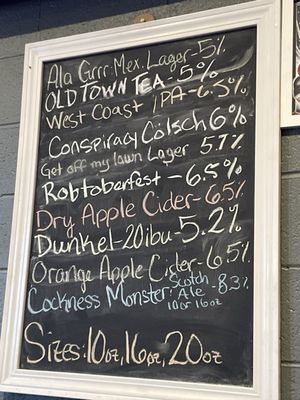 Ala Grrr-Mex. Lager-5%
OLD TOWN TEA-5%
West Coast IPA-6.5%
Conspiracy Cölsch 6%
Get off my lawn Lager 5.7%
Robtoberfest-6.5%
Dry Apple Cider-6.5%
Dunkel-20ibu-5.2%
Orange Apple Cider-6.5%
Cockness Monster: Scotch Ale -8.3%
10 or 16oz
Sizes: 10oz, 16oz, 20oz